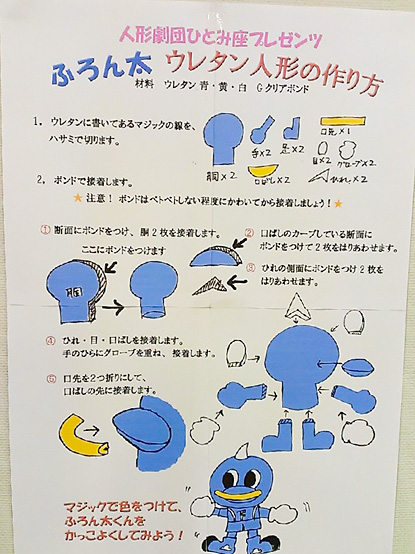 人形劇団ひとみ座プレゼンツ
ふろん太 ウレタン人形の作り方
材料 ウレタン 青・黄・白 Gクリアボンド
1. ウレタンに書いてあるマジックの線を、
ハサミで切ります。
胴×2
手×2
足×2
口先×1
口ばし×2
目×2
グローブ×2
ひれ×2
2. ボンドで接着します。
★注意！ ボンドはベトベトしない程度にかわいてから接着しましょう！★
① 断面にボンドをつけ、胴2枚を接着します。
ここにボンドをつけます
胴
② 口ばしのカーブしている断面に
ボンドをつけて2枚をはりあわせます。
③ ひれの側面にボンドをつけ2枚を
はりあわせます。
④ ひれ・目・口ばしを接着します。
手のひらにグローブを重ね、接着します。
⑤ 口先を2つ折りにして、
口ばしの先に接着します。
マジックで色をつけて、
ふろん太くんを
かっこよくしてみよう！
F